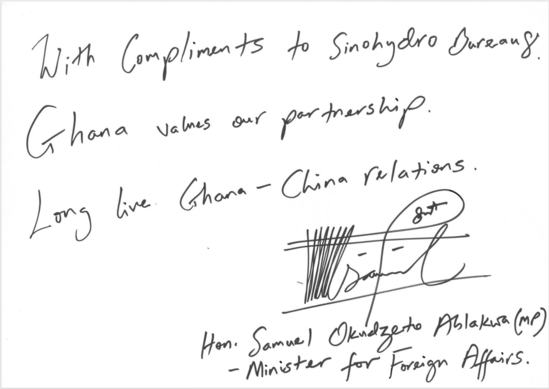 With Compliments to Sinohydro Bureau 8.
Ghana values our partnership.
Long live Ghana - China relations.
Hon. Samuel Okudzeto Ablakwa (MP)
- Minister for Foreign Affairs.